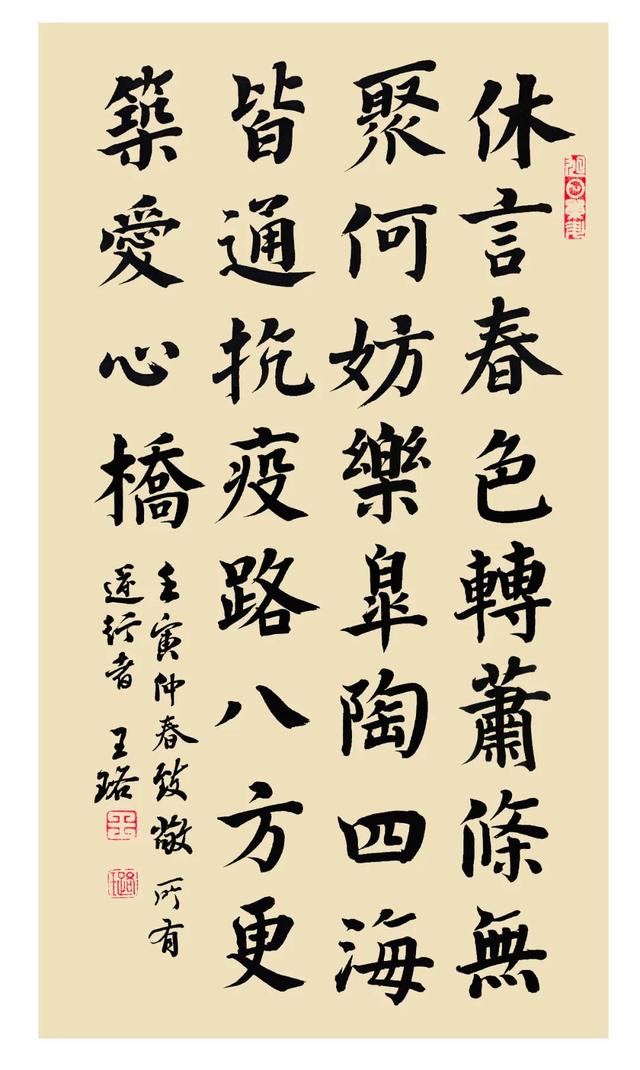 休言春色轉蕭條無
聚何妨樂皐陶四海
皆通抗疫路八方更
築愛心橋
壬寅仲春致敬所有
逆行者 王璐
王
璐